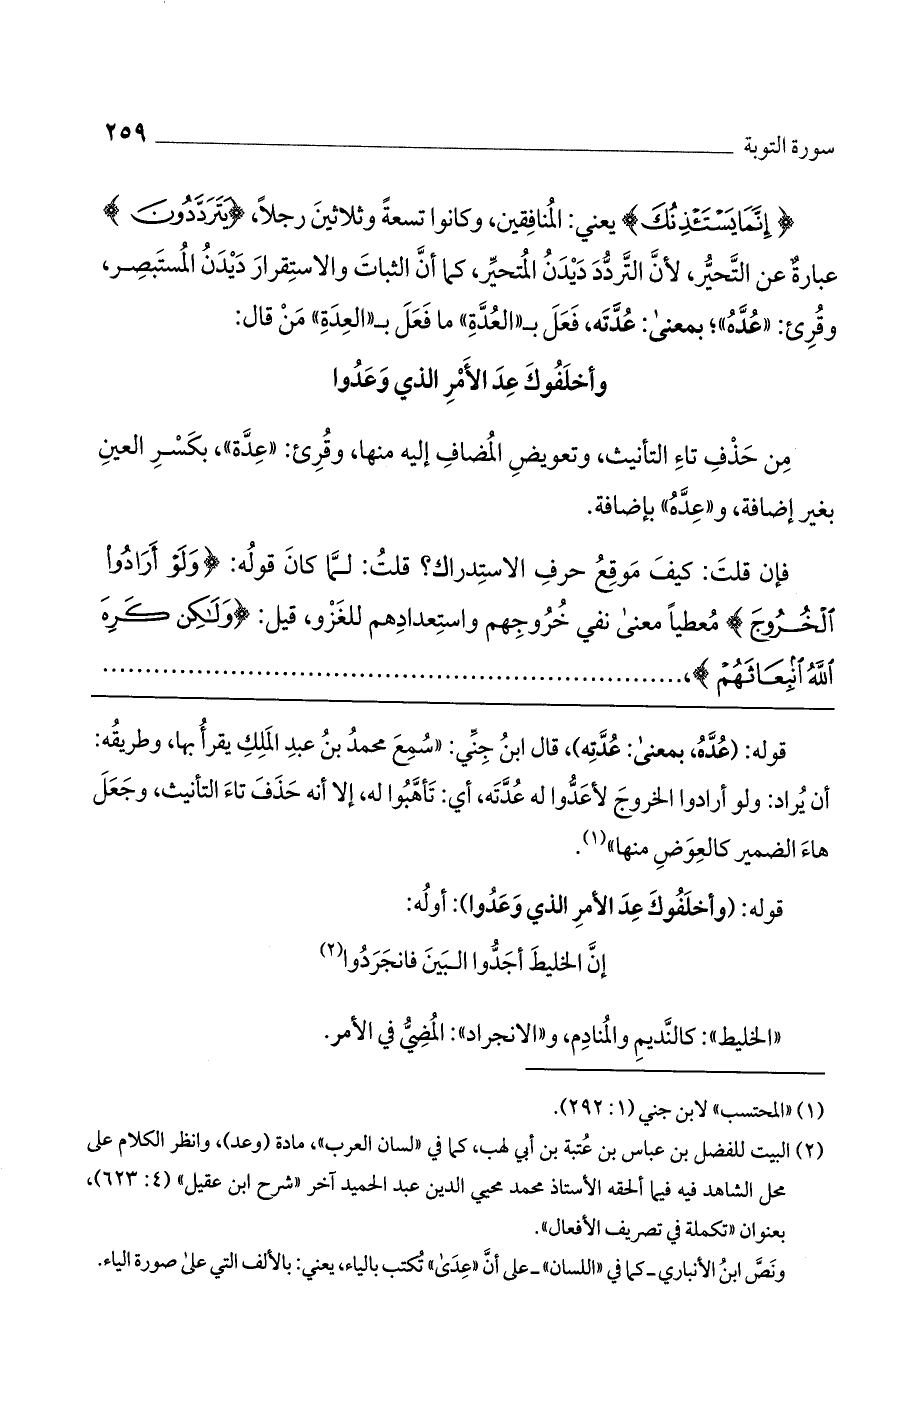 سورة التوبة ٢٥٩
﴿إِنَّمَا يَسْتَـْٔذِنُكَ﴾ يعني: المُنافِقين، وكانوا تسعةً وثلاثينَ رجلاً، ﴿يَتَرَدَّدُونَ﴾
عبارةٌ عن التَّحيُّر، لأنَّ التَّردُّدَ دَيْدَنُ المُتحيِّر، كما أنَّ الثباتَ والاستِقرارَ دَيْدَنُ المُستَبصِر،
وقُرِئ: «عُدَّهُ»؛ بمعنىٰ: عُدَّتَه، فَعَلَ بـ«العُدَّةِ» ما فَعَلَ بـ«العِدَةِ» مَنْ قال:
وأخلَفُوكَ عِدَ الأَمْرِ الذي وَعَدُوا
مِن حَذْفِ تاءِ التأنيث، وتعويضِ المُضافِ إليه منها، وقُرِئ: «عِدَّة»، بكَسْرِ العينِ
بغير إضافة، و«عِدَّهُ» بإضافة.
فإن قلتَ: كيفَ مَوقِعُ حرفِ الاستِدراك؟ قلتُ: لـمَّا كانَ قولُه: ﴿وَلَوْ أَرَادُوا۟
ٱلْخُرُوجَ﴾ مُعطياً معنىٰ نفي خُرُوجِهم واستعدادِهم للغَزْو، قيل: ﴿وَلَٰكِن كَرِهَ
ٱللَّهُ ٱنۢبِعَاثَهُمْ﴾، ......................................................
قوله: (عُدَّهُ، بمعنىٰ: عُدَّتِه)، قال ابنُ جِنِّي: «سُمِعَ محمدُ بنُ عبدِ المَلِكِ يقرأُ بها، وطريقُه:
أن يُراد: ولو أرادوا الخروجَ لأعَدُّوا له عُدَّتَه، أي: تَأهَّبُوا له، إلا أنه حَذَفَ تاءَ التأنيث، وجَعَلَ
هاءَ الضمير كالعِوَضِ منها»(١).
قوله: (وأخلَفُوكَ عِدَ الأمرِ الذي وَعَدُوا): أولُه:
إنَّ الخليطَ أجَدُّوا البَينَ فانجَرَدُوا(٢)
«الخليط»: كالنَّديمِ والمُنادِم، و«الانجراد»: المُضِيُّ في الأمر.
(١) «المحتسب» لابن جني (١: ٢٩٢).
(٢) البيت للفضل بن عباس بن عُتبة بن أبي لهب، كما في «لسان العرب»، مادة (وعد)، وانظر الكلام على
محل الشاهد فيه فيما ألحقه الأستاذ محمد محيي الدين عبد الحميد آخر «شرح ابن عقيل» (٤: ٦٢٣)،
بعنوان «تكملة في تصريف الأفعال».
ونَصَّ ابنُ الأنباري ـ كما في «اللسان» ـ على أنَّ «عِدَىٰ» تُكتب بالياء، يعني: بالألف التي علىٰ صورة الياء.